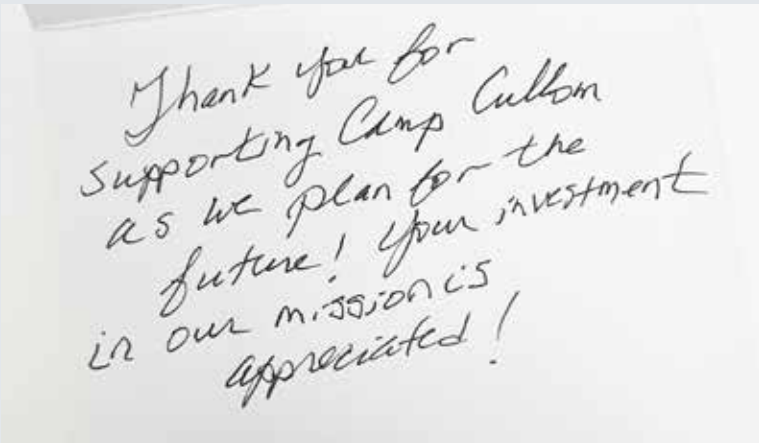 Thank you for
supporting Camp Cullom
as we plan for the
future! Your investment
in our mission is
appreciated!